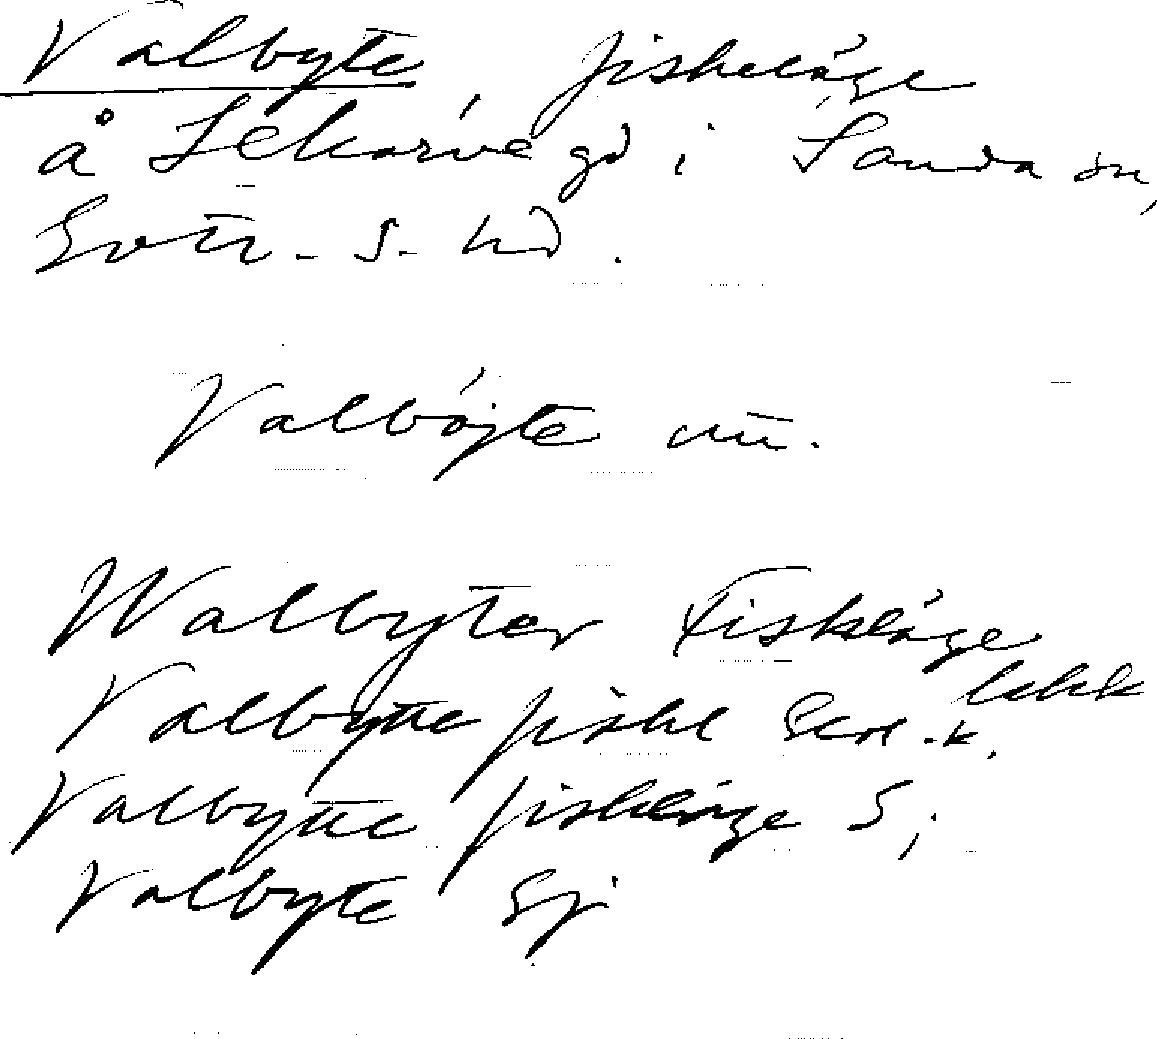 Valbyte, fiskeläge
å Lekarve gd i Sanda sn,
Gotl. S. hd.
Valböjte uu.
Walbyter Fiskläge
Valbytte fiskl Gen.k. lekk
Valbytte fiskläge S;
Valbyte Sj